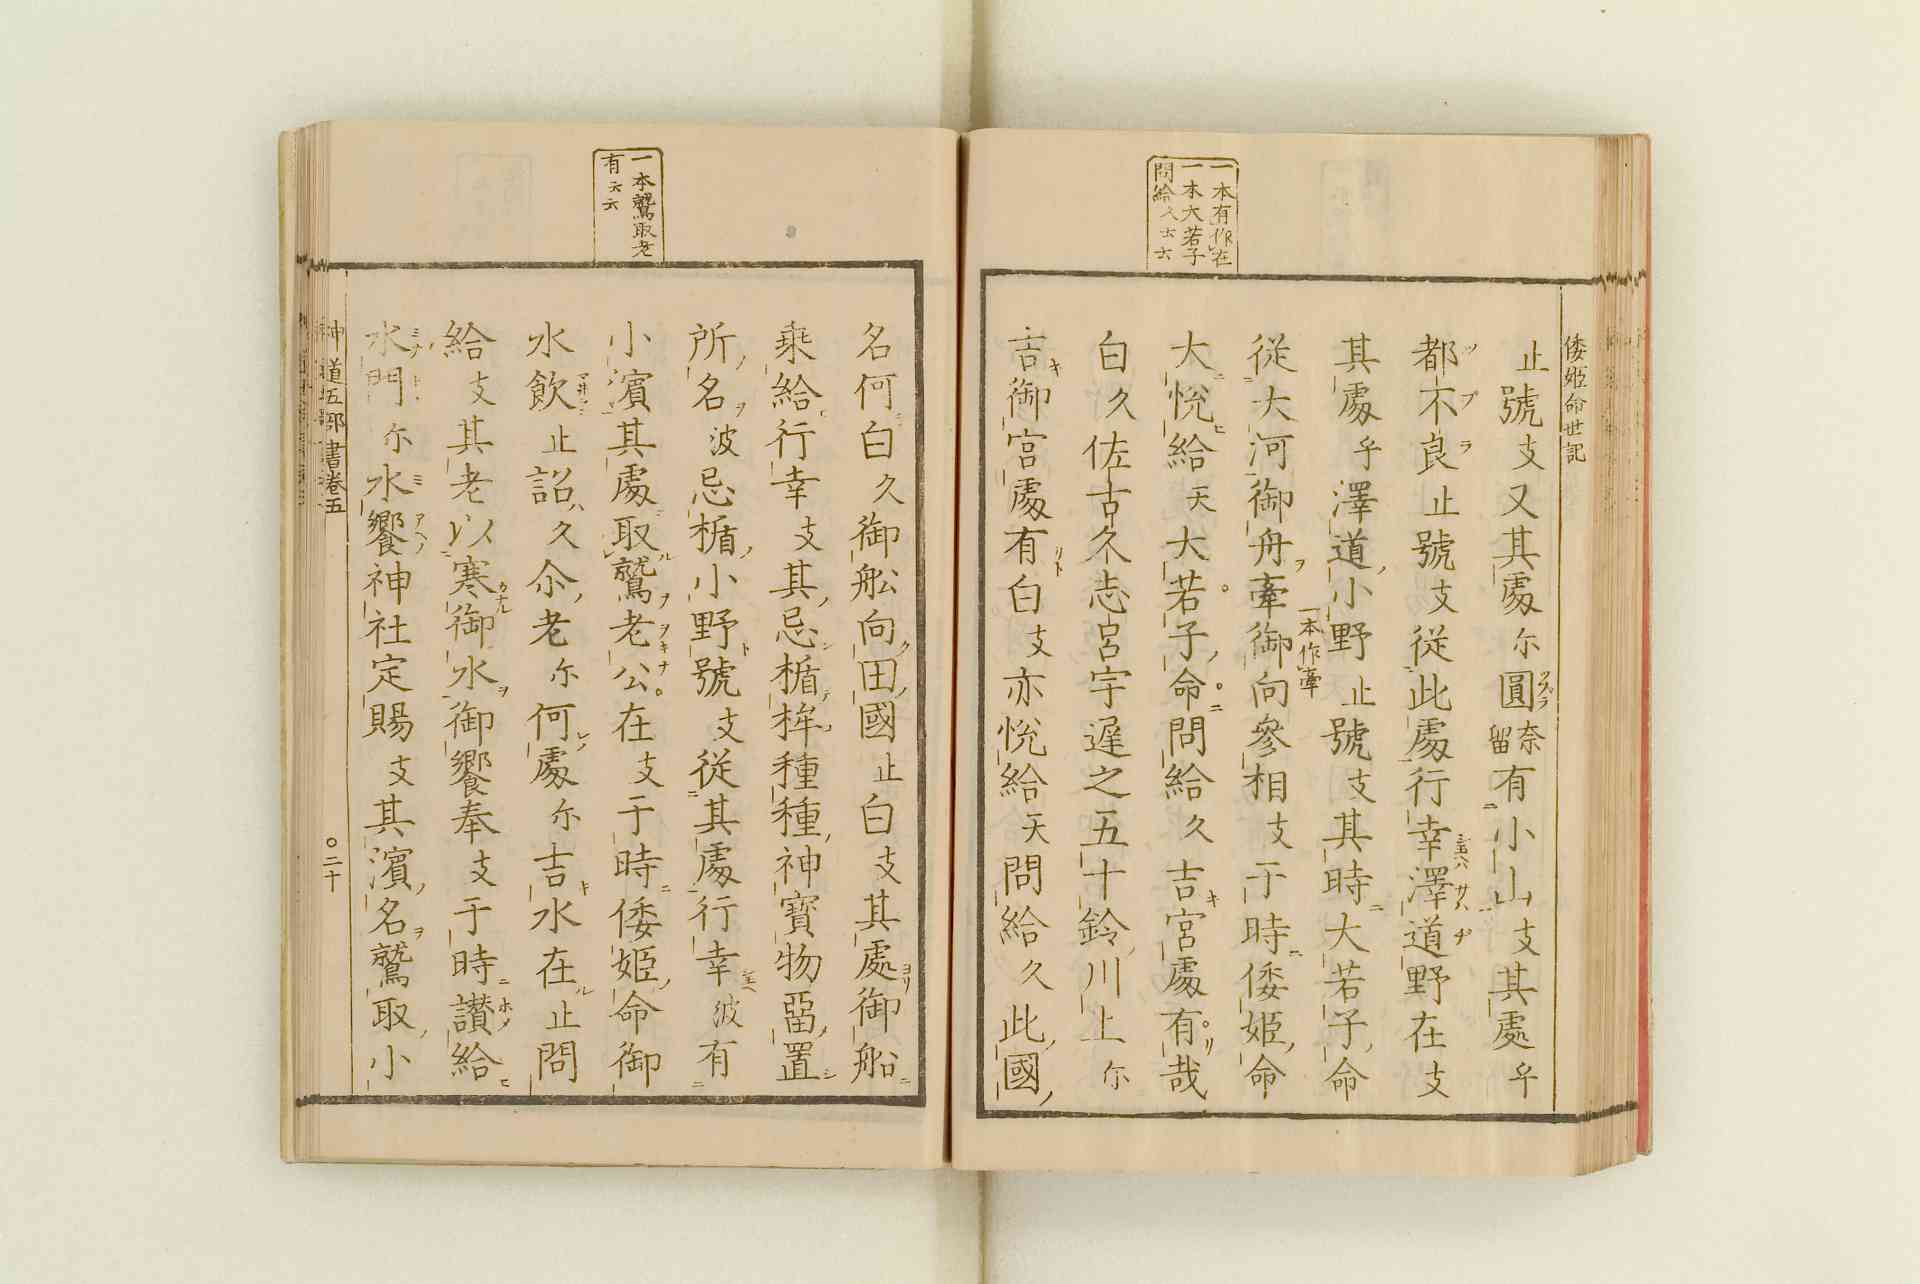 倭姫命世記
一本有作在
一本大若子
問給久云云
止號支又其處尓圓奈留有小山支其處乎
都不良止號支從此處行幸澤道野在支
其處乎澤道小野止號支其時大若子命
從大河御舟牽御向參相支于時倭姫命
一本作牽
大悦給天大若子命問給久吉宮處有哉
白久佐古久志呂宇遲之五十鈴川上尓
吉御宮處有白支亦悦給天問給久此國
一本鷲取老
有云云
名何白久御舩向田國止白支其處御船
乗給行幸支其忌楯桙種種神寶物畱置
所名波忌楯小野號支從其處行幸波有
小濱其處取鷲老公在支于時倭姫命御
水飲止詔久尒老尓何處尓吉水在止問
給支其老以寒御水御饗奉支于時讃給
水門尓水饗神社定賜支其濱名鷲取小
神道五部書卷五
○二十